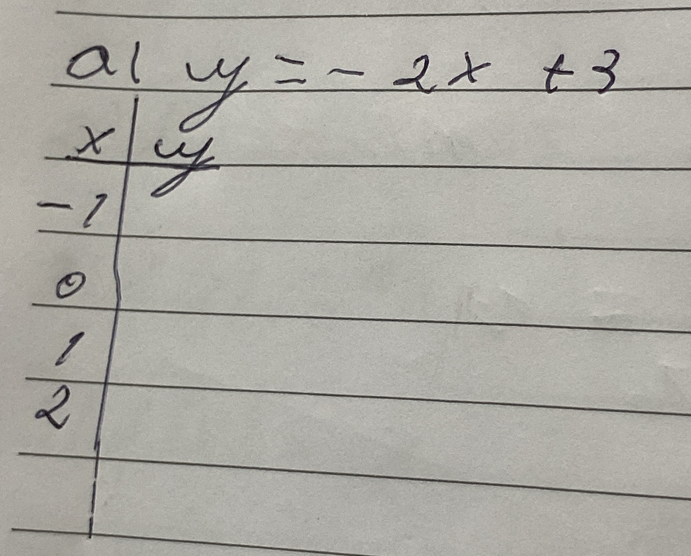 a) y = - 2x + 3
x | y
-1
0
1
2